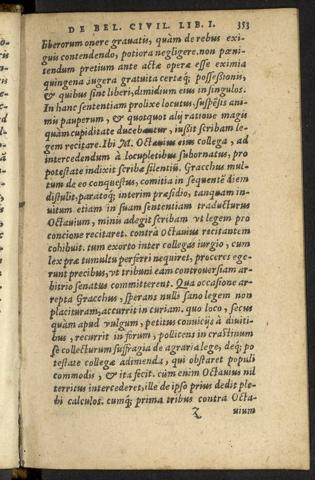 DE BEL. CIVIL. LIB. I. 353
liberorum onere grauatis, quàm de rebus exi-
guis contendendo, potiora negligere. non pœni-
tendum pretium ante actæ operæ esse eximia
quingena iugera gratuita certaq́; possessionis,
& quibus sint liberi, dimidium eius in singulos.
In hanc sententiam prolixe locutus, suspēsis ani-
mis pauperum, & quotquot alij ratione magis
quàm cupiditate ducebantur, iußit scribam le-
gem recitare. Ibi M. Octauius eius collega, ad
intercedendum à locupletibus subornatus, pro
potestate indixit scribæ silentiū. Gracchus mul-
tum de eo conquestus, comitia in sequentē diem
distulit, paratoq́; interim præsidio, tanquam in-
uitum etiam in suam sententiam traducturus
Octauium, minū adegit scribam vt legem pro
concione recitaret. contrà Octauius recitantem
cohibuit. tum exorto inter collegas iurgio, cum
lex præ tumultu perferri nequiret, proceres ege-
runt precibus, vt tribuni eam controuersiam ar-
bitrio senatus committerent. Qua occasione ar-
repta Gracchus, sperans nulli sano legem non
placituram, accurrit in curiam. quo loco, secus
quàm apud vulgum, petitus conuicijs à diuiti-
bus, recurrit in forum, pollicens in crastinum
se collecturum suffragia de agraria lege, deq́; po
testate collegæ adimenda, qui obstaret populi
commodis, & ita fecit. cùm enim Octauius nil
territus intercederet, ille de ipso prius dedit ple-
bi calculos. cumq́; prima tribus contra Octa-
Z uium